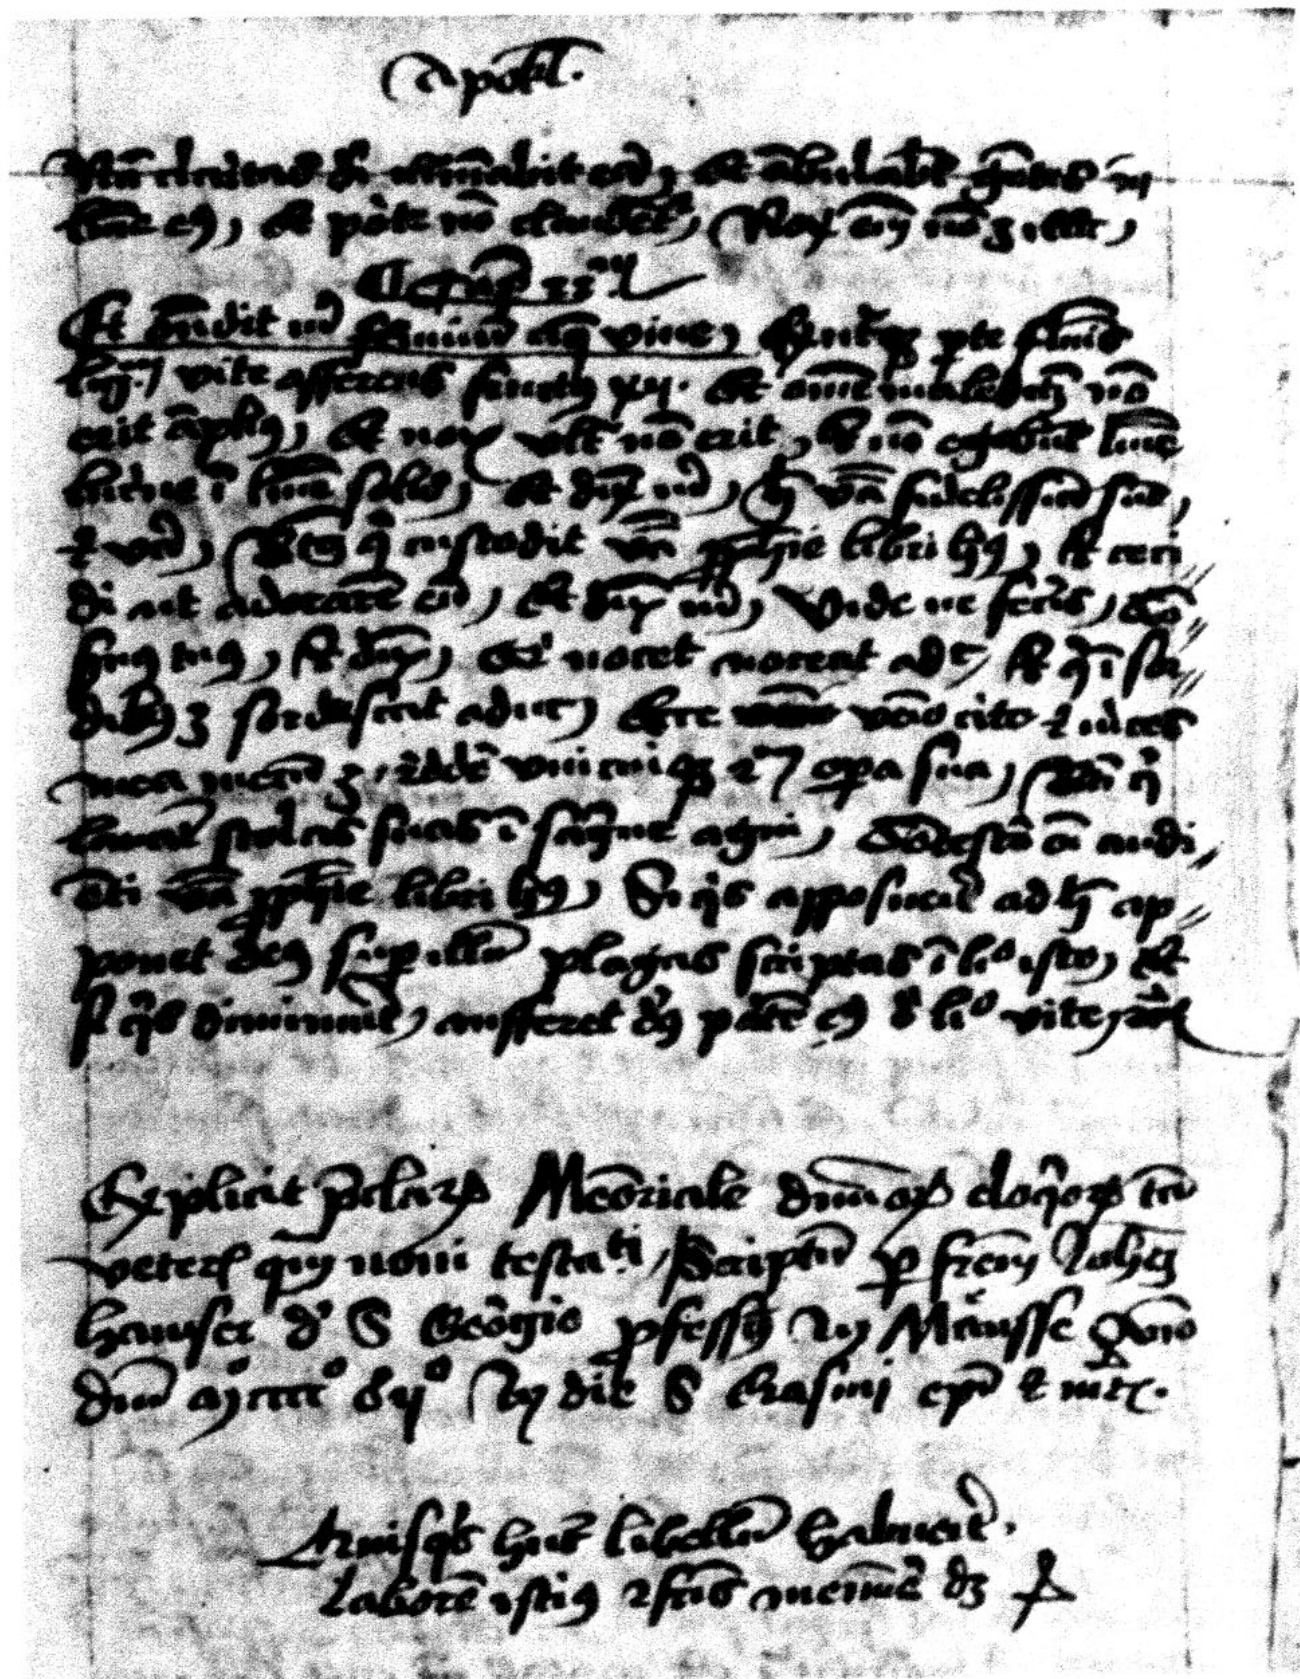 Apocal.
Nam claritas dei illuminabit eam, et ambulabunt gentes in
lumine eius, et porte non claudentur, Nox enim non est illic,
Capitulum 22m
Et ostendit michi fluvium aque vive, Ex utraque parte fluminis
lignum vite afferens fructus xii. et omne maledictum non
erit amplius, et nox ultra non erit, et non egebunt lumine
lucerne in lumine solis, et dixit michi, hec verba fidelissima sunt,
et vera, Beatus qui custodit verba prophetie libri huius, Et ceci
di ut adorarem eum, et dixit michi, Vide ne feceris, Con
servus tuus, Et dixit, Qui nocet noceat adhuc, Et qui in sor
dibus est sordescat adhuc, Ecce venio cito et merces
mea mecum est, reddere unicuique secundum opera sua, Beati qui
lavant stolas suas in sanguine agni, Contestor omni audi
enti verba prophetie libri huius, Si quis apposuerit ad hec ap
ponet deus super illum plagas scriptas in libro isto, Et
si quis diminuerit, aufferet deus partem eius de libro vite,
Explicit preclarum Memoriale divinorum eloquiorum tam
veteris quam novi testamenti, Scriptum per fratrem Johannem
hauser de S Georgio professum In Mansse Anno
domini In die S Erasmi episcopi et martiris.
Quisquis hunc libellum habuerit,
laborem istius fratris meminisse debet